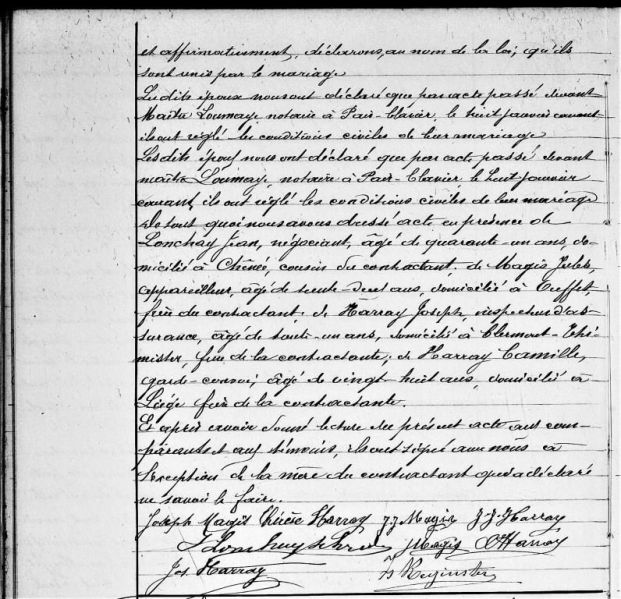 et affirmativement, déclarons, au nom de la loi, qu'ils
sont unis par le mariage
Lesdits époux nous ont déclaré que par acte passé devant
Maître Loumaye, notaire à Pair-Clavier, le huit janvier courant
ils ont réglé les conditions civiles de leur mariage
Lesdits époux nous ont déclaré que par acte passé devant
maître Loumaye, notaire à Pair-Clavier le huit janvier
courant, ils ont réglé les conditions civiles de leur mariage
De tout quoi nous avons dressé acte en présence de
Lonchay Jean, négociant, âgé de quarante-un ans, do-
micilié à Chênée, cousin du contractant; de Magis Jules,
appareilleur, âgé de trente-deux ans, domicilié à
frère du contractant; de Harray Joseph, inspecteur d'as-
surance, âgé de trente-un ans, domicilié à Clermont-Thi-
mister, frère de la contractante; de Harray Camille,
garde-convoi, âgé de vingt huit ans, domicilié à
Liége frère de la contractante.
Et après avoir donné lecture du présent acte aux com-
parants et aux témoins, ils ont signé avec nous à
l'exception de la mère du contractant qui a déclaré
ne savoir le faire.
Joseph Magis Harray J. J. Magis J. J. Harray
J Magis C Harray
Jos Harray